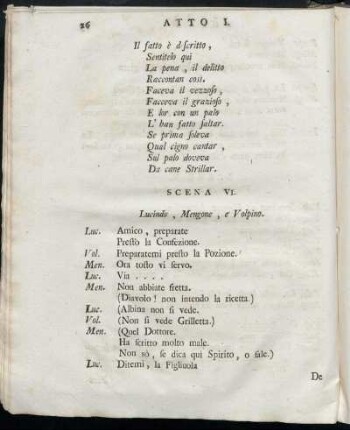 26 ATTO I.
Il fatto è dſcritto,
Sentitelo qui
La pena, il delitto
Raccontan così.
Faceva il vezzoſo,
Facceva il grazioſo,
E lor con un palo
L' han fatto ſaltar.
Se prima ſoleva
Qual cigno cantar,
Sul palo doveva
Da cane Strillar.
SCENA VI.
Lucindo, Mengone, e Volpino.
Luc. Amico, preparate
Preſto la Confezione.
Vol. Preparatemi preſto la Pozione.
Men. Ora toſto vi ſervo.
Luc. Via . . . .
Men. Non abbiate fretta.
(Diavolo! non intendo la ricetta.)
Luc. (Albina non ſi vede.
Vol. (Non ſi vede Grilletta.)
Men. (Quel Dottore.
Ha ſcritto molto male.
Non sò, ſe dica quì Spirito, o ſale.)
Luc. Ditemi, la Figliuola
De